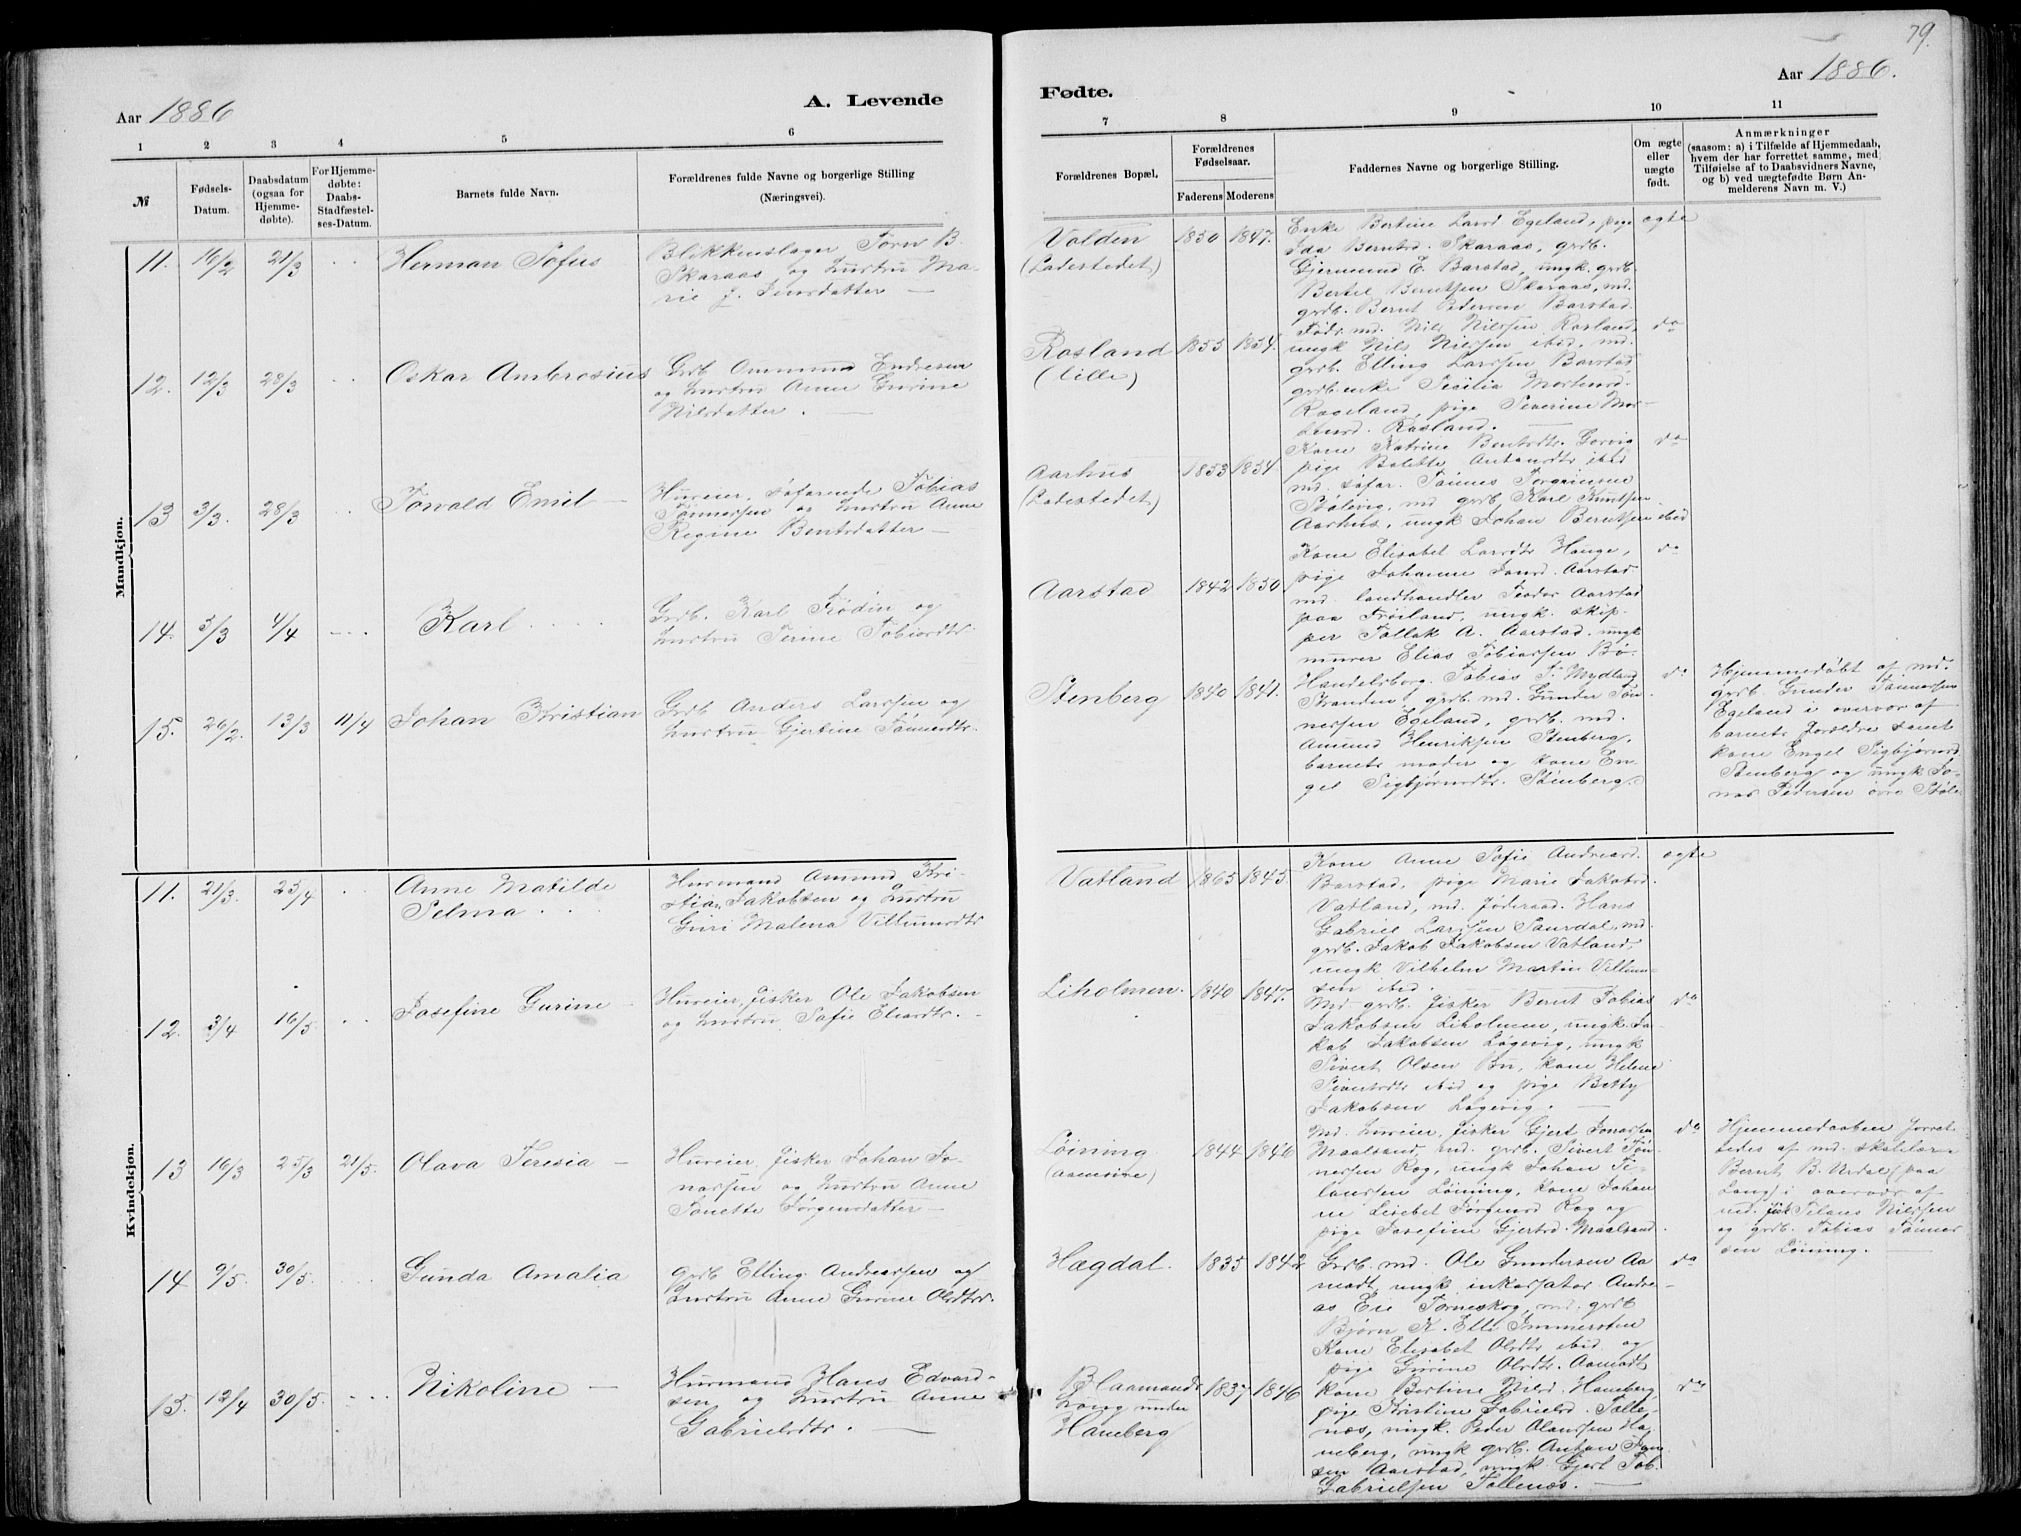 79.
Aar 1886
A. Levende
Fødte.
Aar 1886.
1 2 3 4 5 6
7 8 9 10 11
№
Fødsels-
Datum.
Daabsdatum
(ogsaa for
Hjemme-
døbte).
For Hjemme-
døbte:
Daabs-
Stadfæstel-
ses-Datum.
Barnets fulde Navn.
Forældrenes fulde Navne og borgerlige Stilling
(Næringsvei).
Forældrenes Bopæl.
Forældrenes
Fødselsaar.
Faderens Moderens
Faddernes Navne og borgerlige Stilling.
Om ægte
eller
uægte
født.
Anmærkninger
(saasom: a) i Tilfælde af Hjemmedaab,
hvem der har forrettet samme, med
Tilføielse af to Daabsvidners Navne,
og b) ved uægtefødte Børn An-
melderens Navn m. V.)
Mandkjøn.
11. 16/2 21/3 Herman Sofus
Blikkenslager Tørn B.
Skaraas og hustru Ma-
rie J. Jensdatter —
Volden
(Ladestedet)
1850 1847.
Enke Bertine Larsd Egeland, pige
Ida Berntsd. Skaraas, grdb.
Gjermund E. Barstad, ungk. grdb.
Bertel Berntsen Skaraas, md.
grdb. Bernt Pedersen Barstad
ægte
12. 12/3 28/3 Oskar Ambrosius
Grdb Ommund Endresen
og hustru Anne Gurine
Nilsdatter. —
Rosland
(lille)
1855 1854.
Føder. md. Nils Nilssen Rosland,
ungk Nils Nilssen ibid, md.
grdb. Elling Larssen Barstad,
grdbenke Secilia Mortensd.
Rageland, pige Severine Mor-
tensd. Rosland. —
do
13 3/3. 28/3 Torvald Emil —
Huseier, søfarende Tobias
Tønnessen og hustru Anne
Regine Bentsdatter —
Aarhus
(Ladestedet)
1853 1854
Kone Katrine Bentsdtr.
pige Bolette ibid
md. søfar. Tønnes Torgersen
Stølevig, md grdb Karl Knutsen
Aarhus, ungk Johan Berntsen ibid
do
14. 5/3 4/4 Karl
Grdb. Karl Frødin og
hustru Serine Tobiasdtr.
Aarstad
1842 1850
Kone Elisabet Larsdtr Hauge,
pige Johanne Aarstad
md. landhandler Teodor Aarstad
paa Frøiland, ungk. skip-
per Tollak A. Aarstad. ungk
murer Elias Tobiassen Bø.
do
15. 26/2. 13/3 11/4 Johan Kristian
Grdb Anders Larssen og
hustru Gjertine Tønnesdtr.
Stenberg
1840 1841.
Handelsborg. Tobias T. Mydland
Stranden, grdb. md. Gunder Tøn-
nessen Egeland, grdb. md.
Amund Henriksen Stenberg,
barnets moder og kone En-
gel Sigbjørnsdtr. Stenberg.
do
Hjemmedøbt af md.
grdb. Gunder Tønnessen
Egeland i overvær af
barnets forældre samt
kone Engel Sigbjørnsd
Stenberg og ungk Jo-
nas Pedersen øvre Støle
Kvindekjøn.
11. 21/3. 25/4 Anne Matilde
Selma
Husmand Amund Kri-
stian Jakobsen og hustru
Guri Malena Villumsdtr
Vatland
1865 1845.
Kone Anne Sofie Andreasd.
Barstad, pige Marie Jakobsd.
Vatland, md. føderaad. Hans
Gabriel Larssen Saurdal, md.
grdb. Jakob Jakobsen Vatland,
ungk Vilhelm Martin Villum-
sen ibid.
ægte
12. 3/4 16/5 Josefine Gurine —
Huseier, fisker Ole Jakobsen
og hustru Sofie Eliasdtr. —
Liholmen.
1840 1847.
Md grdb. fisker Bernt Tobias
Jakobsen Liholmen, ungk. Ja-
kob Jakobsen Løgevig, ungk
Sivert Olsen Bu, kone Helene
Sivertsdtr ibid og pige Betty
Jakobsen Løgevig. —
do
13 16/3 25/3 21/5. Olava Teresia —
Huseier fisker Johan Jo-
nassen og hustru Anne
Tonette Jørgensdatter —
Løining
(Aamsine)
1844 1846
Md. huseier, fisker Gjert Jonassen
Maalsand, md. grdb. Sivert Tøn-
nessen Røg, ungk Johan Te-
laussen Løining, kone Johan
ne Lisebet Jørgensd Røg og
pige Josefine Gjertsd. Maalsand.
do
Hjemmedaaben forret-
tedes af md. skolelærer
Bernt B. Urdal (paa
Lang) i overvær af
md. fisk Telaus Nilssen
og grdb. Tobias Tønnes
sen Løining.
14 9/5. 30/5. Gunda Amalia
Grdb Elling Andreassen og
hustru Anne Gurine Olsdtr.
Hægdal.
1835 1842
Grdb. md. Ole Gundersen Aa
modt, ungk. inkassator Andre-
as Eie Torneskog, md. grdb
Bjørn K. Immerstein
Kone Elisabet Olsdtr ibid og
pige Gurine Olsdtr. Aamodt
do
15. 12/4 30/5. Nikoline —
Husmand Hans Edvard-
sen og hustru Anne
Gabrielsdtr. —
Blaamands-
houg under
Haneberg
1837 1846
Kone Bertine Nilsd. Haneberg
pige Kristine Gabrielsd. Tolle-
næs, ungk. Peder Olaussen Ha
neberg, ungk grdb. Anton Jan
sen Aarstad, ungk Gjert Tob.
Gabrielsen Tollenæs. —
do